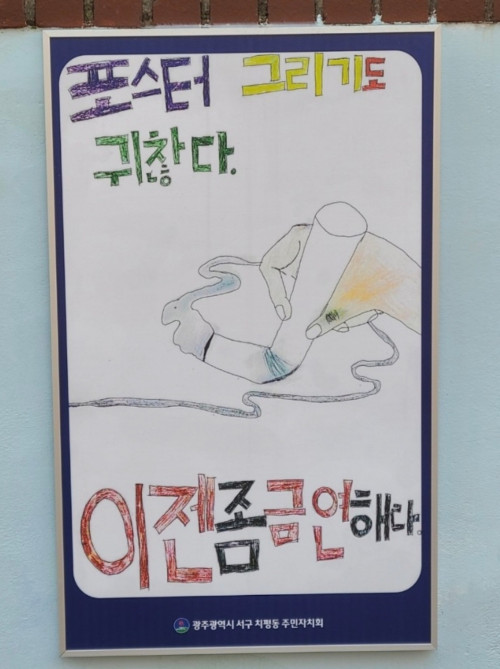 포스터 그리기도
귀찮다.
이젠좀금연해다.
광주광역시 서구 치평동 주민자치회